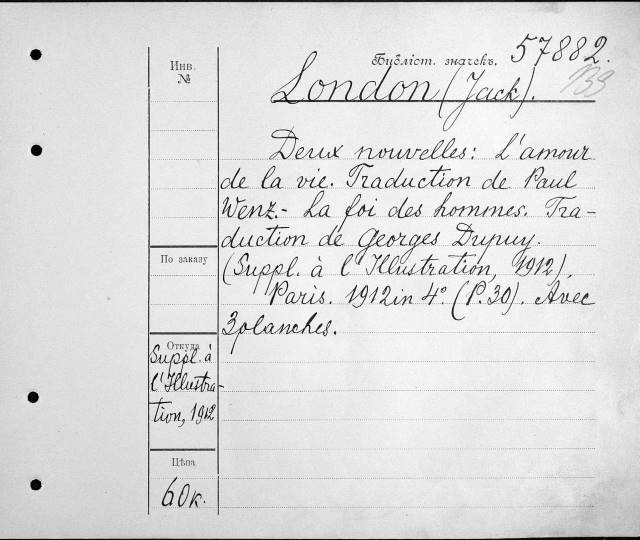 Бубліот. значекъ. 57882.
Инв.
№
London (Jack).
Deux nouvelles: L'amour
de la vie. Traduction de Paul
Wenz.- La foi des hommes. Tra-
duction de Georges Dupuy.
(Suppl. à l'Illustration, 1912).
Paris. 1912 in 4°. (P. 30). Avec
3 planches.
По заказу
Откуда
Suppl. à
l'Illustra-
tion, 1912
Цѣна
60к.